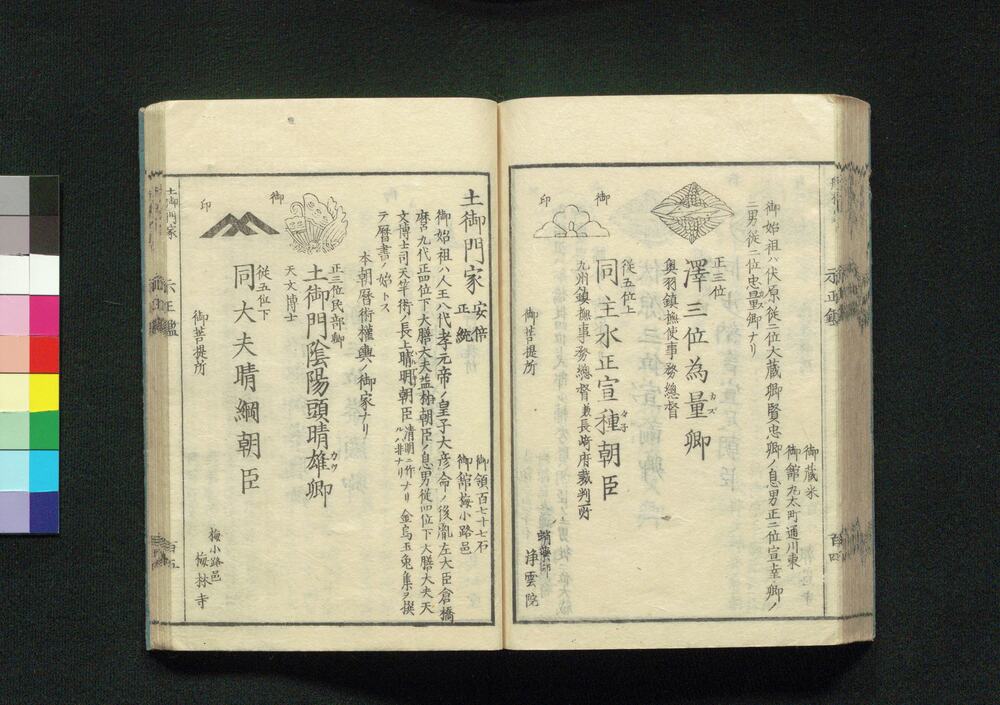 御蔵米
御館丸太町通川東
御始祖ハ伏原從二位大蔵卿賢忠卿ノ息男正二位宣幸卿ノ
二男從二位忠量卿ナリ
正三位
澤三位為量卿
カズ
奥羽鎮撫使事務總督
從五位上
同主水正宣種朝臣
九州鎮撫事務總督兼長崎府裁判所
御
印
御菩提所
蛸藥師
浄雲院
百四
土御門家
安倍
正統
御領百七十七石
御館梅小路邑
御始祖ハ人王八代孝元帝ノ皇子大彦命ノ後胤左大臣倉橋
麿九代正四位下大膳大夫益材朝臣ノ息男從四位下大膳大夫天
文博士司天筭術ノ長上晴明朝臣
清明ニ作ナリ
ルハ非ナリ
金烏玉兎集ヲ撰
テ暦書ノ始トス
本朝暦術權輿ノ御家ナリ
正三位民部卿
土御門陰陽頭晴雄卿
天文博士
從五位下
同大夫晴綱朝臣
御
印
御菩提所
梅小路邑
梅林寺
土御門家
百五